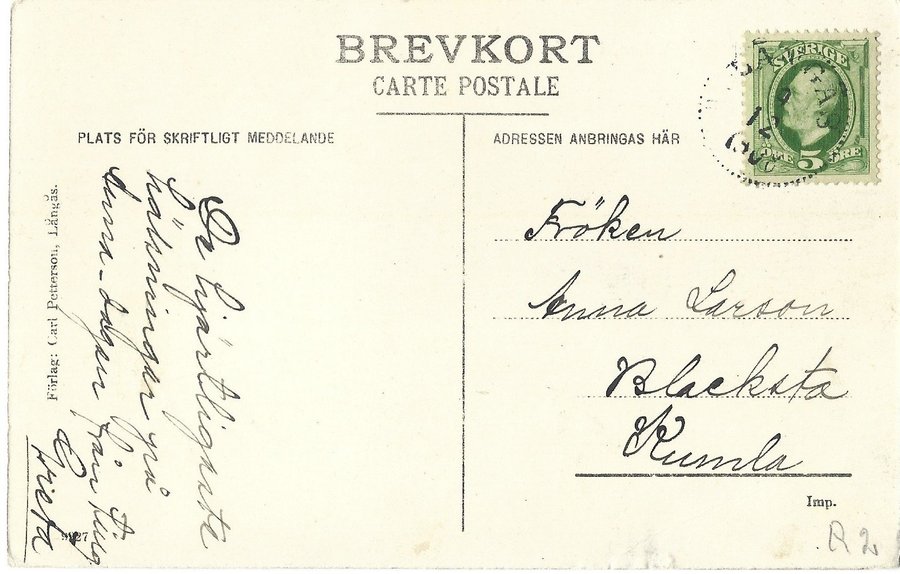 BREVKORT
CARTE POSTALE
PLATS FÖR SKRIFTLIGT MEDDELANDE
ADRESSEN ANBRINGAS HÄR
SVERIGE
5
ÖRE
De hjärtligaste
hälsningar på
Anna-dagen från
Förlag: Carl Petterson, Långås.
Fröken
Anna Larson
Blacksta
Kumla
Imp.
R 2